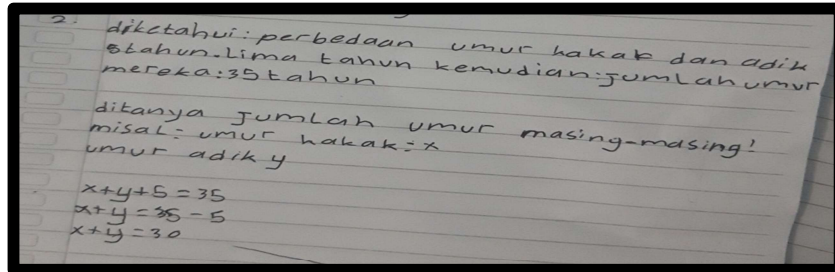 2.
diketahui: perbedaan umur kakak dan adik
5tahun. Lima tahun kemudian: jumlah umur
mereka: 35 tahun
ditanya jumlah umur masing-masing!
misal: umur kakak: x
umur adik y
x+y+5 = 35
x+y = 35 - 5
x+y = 30